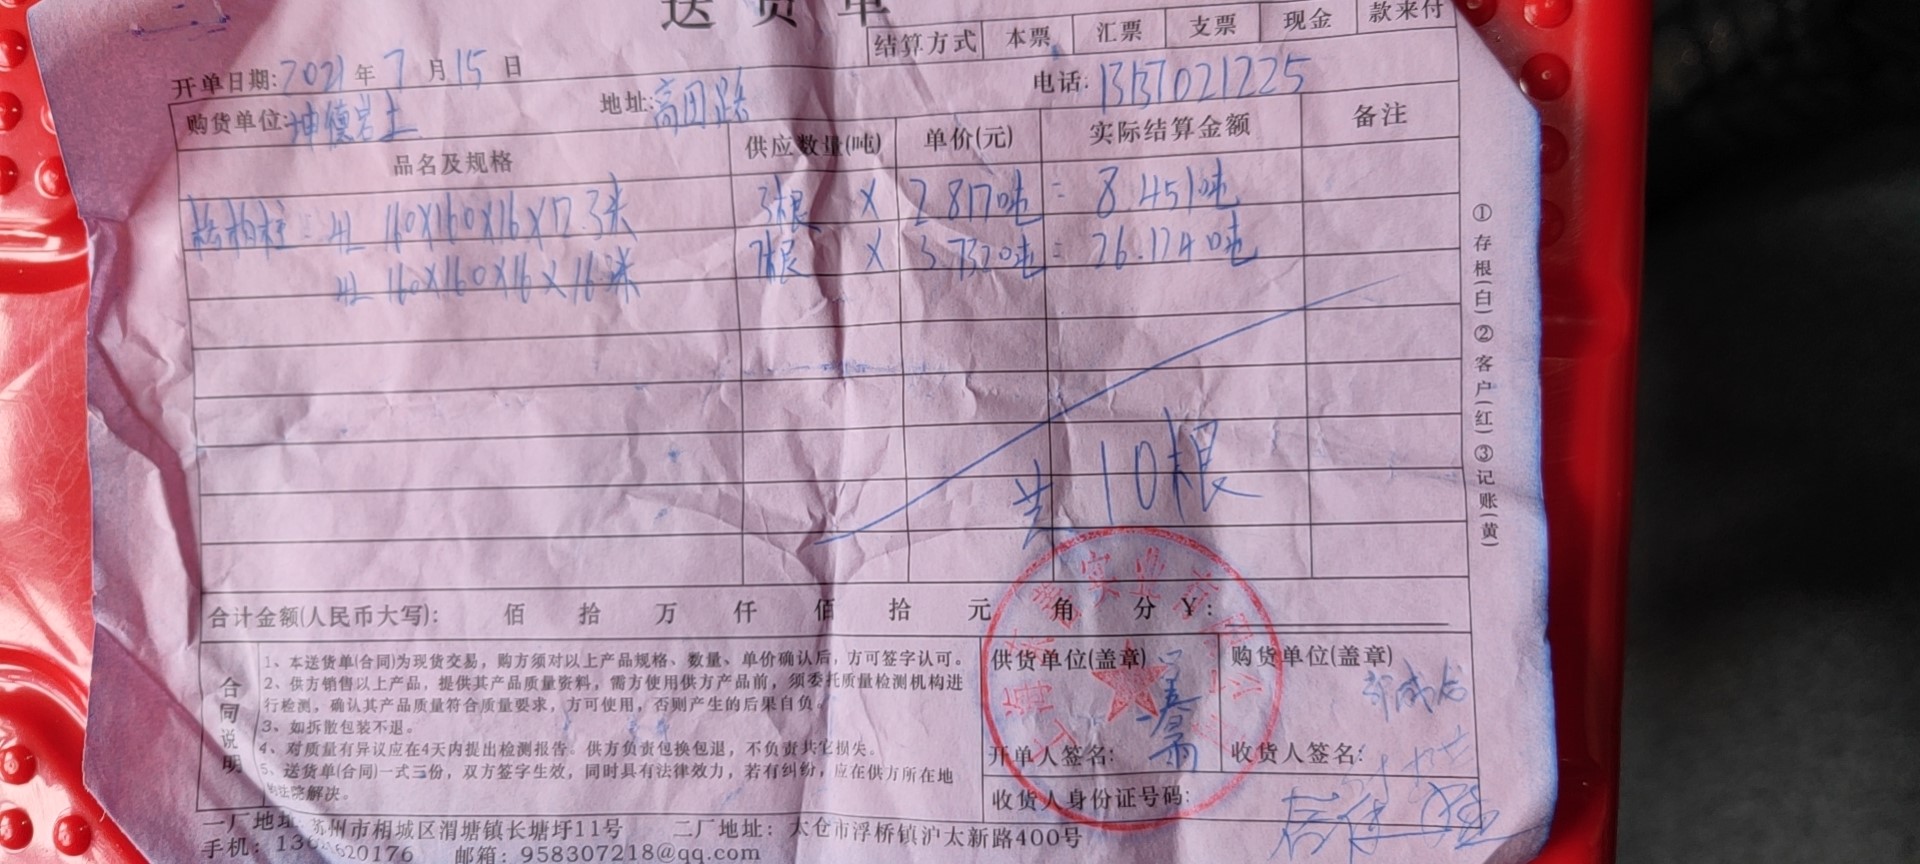 送货单
结算方式 本票 汇票 支票 现金 款来付
开单日期:2021年7月15日
购货单位:坤德岩土 地址:高田路 电话:
品名及规格 供应数量(吨) 单价(元) 实际结算金额 备注
格构柱: 4L 160X160X16X17.3米 3根 X 2.817吨 = 8.451吨
4L 160X160X16X16米 7根 X = 26.124吨
共10根
合计金额(人民币大写): 佰 拾 万 仟 佰 拾 元 角 分 ¥:
合同说明
1、本送货单(合同)为现货交易，购方须对以上产品规格、数量、单价确认后，方可签字认可。
2、供方销售以上产品，提供其产品质量资料，需方使用供方产品前，须委托质量检测机构进
行检测，确认其产品质量符合质量要求，方可使用，否则产生的后果自负。
3、如拆散包装不退。
4、对质量有异议应在4天内提出检测报告。供方负责包换包退，不负责其它损失。
5、送货单(合同)一式三份，双方签字生效，同时具有法律效力，若有纠纷，应在供方所在地
的法院解决。
供货单位(盖章) 购货单位(盖章)
开单人签名: 收货人签名:
收货人身份证号码:
一厂地址 苏州市相城区渭塘镇长塘圩11号 二厂地址：太仓市浮桥镇沪太新路400号
手机： 邮箱：958307218@qq.com
①存根(白)②客户(红)③记账(黄)